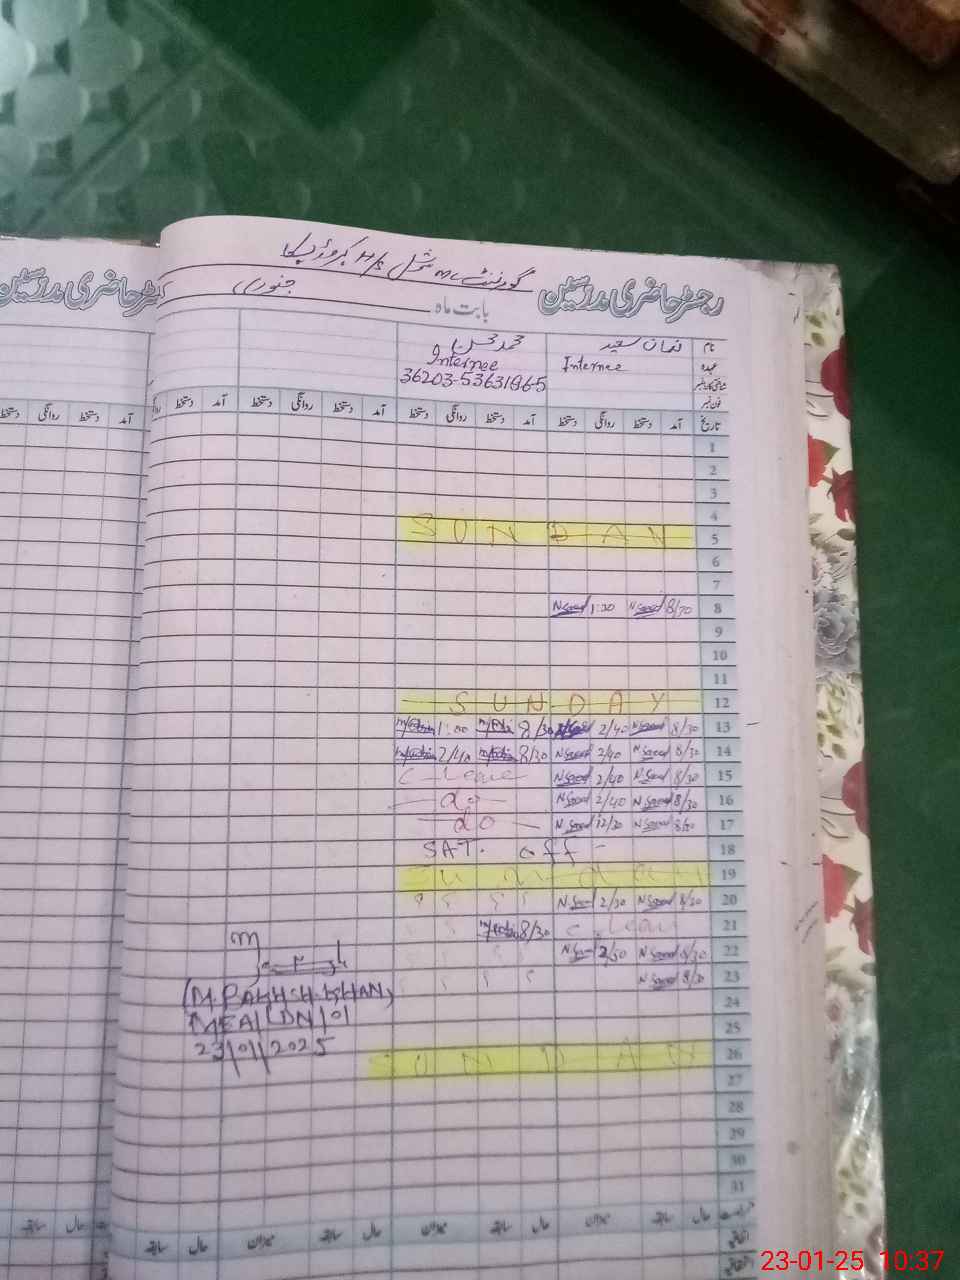 گورنمنٹ ماڈل H/S کہروڑپکا
رجسٹر حاضری مدرسین
بابت ماہ جنوری
نام نعمان سعید محمد محسن
عہدہ Internee Internee
شناختی کارڈ نمبر 36203-5363196-5
فون نمبر
تاریخ آمد دستخط روانگی دستخط آمد دستخط روانگی دستخط آمد دستخط روانگی دستخط آمد دستخط
1
2
3
4
5 SUNDAY
6
7
8 8/30 N Saeed 1:30 N Saeed
9
10
11
12 SUNDAY
13 8/30 N Saeed 2/40 N Saeed 8/30 1:00
14 8/30 N Saeed 2/40 N Saeed 8/30 2/40
15 8/30 N Saeed 2/40 N Saeed C-Leave
16 8/30 N Saeed 2/40 N Saeed do
17 8/30 N Saeed 12/30 N Saeed do
18 SAT. off
19 Sunday
20 8/30 N Saeed 2/30 N Saeed
21 C. Leave 8/30
22 8/30 N Saeed 2/30 N Saeed
23 8/30 N Saeed
24
25
26 SUNDAY
27
28
29
30
31
(M. BAKHSH KHAN)
MEA/LDN/01
23/01/2025
میزان حال سابقہ میزان حال سابقہ میزان حال سابقہ
رجسٹر حاضری مدرسین
23-01-25 10:37